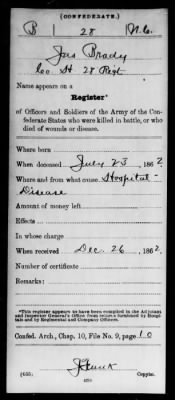 (CONFEDERATE.)
B 28 N.C.
Jas Brady
Co H 28 Regt
Name appears on a
Register*
of Officers and Soldiers of the Army of the Con-
federate States who were killed in battle, or who
died of wounds or disease.
Where born
When deceased July 23, 1862
Where and from what cause Hospital-
Disease
Amount of money left
Effects
In whose charge
When received Dec. 26, 1862.
Number of certificate
Remarks:
*This register appears to have been compiled in the Adjutant
and Inspector General's Office from returns furnished by Hospi-
tals and by Regimental and Company Officers.
Confed. Arch., Chap. 10, File No. 9, page 10
(635) Copyist.